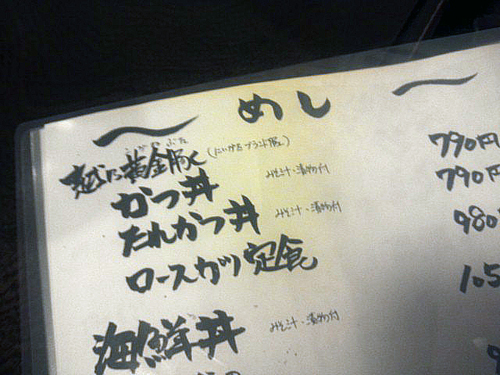 〜 めし 〜
越後黄金豚 (にいがたブランド豚)
かつ丼 みそ汁・漬物付 790円
たれかつ丼 みそ汁・漬物付 790円
ロースカツ定食 980
海鮮丼 みそ汁・漬物付 105